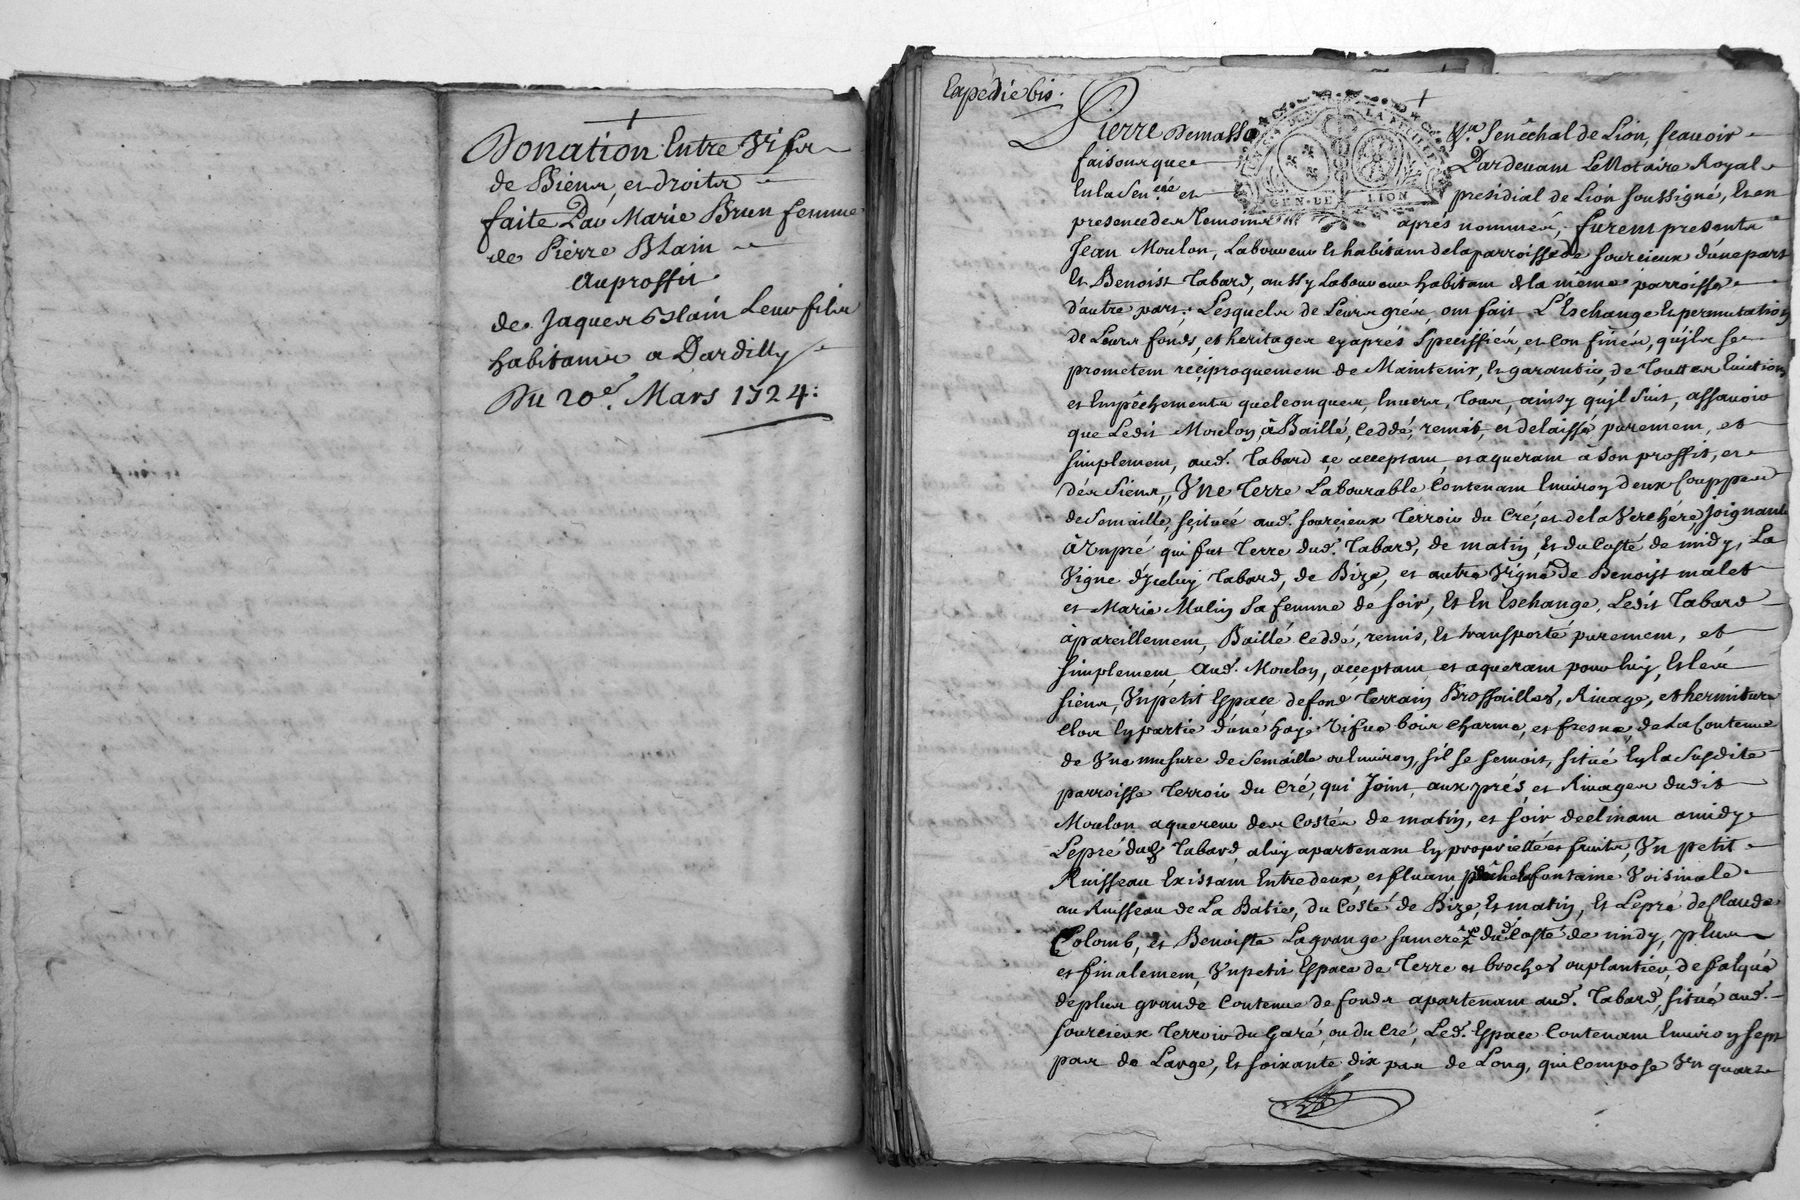 Donation Entre Vifs
de Biens, et droits
faite Par Marie Brun femme
de Pierre Blain
Au proffit
de Jaques Blain Leur fils
habitants a Dardilly
Du 20e. Mars 1724:
Expédié bis.
Pierre Demasso Senéchal de Lion, scavoir
faisons que Pardevant Le Notaire Royal
En la Senée. et presidial de Lion soussigné, et en
GEN. DE LION
presence des temoins après nommés, furent presents
Jean Moulon, Laboureur et habitant de la parroisse de sourcieux d'une part
Et Benoist Tabard, aussy Laboureur habitant de la même parroisse
d'autre part. Lesquels de Leurs grés, ont fait L'Eschange et permutation
de Leurs fonds, et heritages cy après speciffiés, et confinés, qu'jls se
prometent reciproquement de Maintenir, et garantir, de Touttes Evictions
et Empêchements quelconques, Envers, Tous, ainsy qu'jl suit, assavoir
que Ledit Moulon, à Baillé, ceddé, remis, et delaissé purement, et
simplement, aud. Tabard ce acceptant, et aquerant a son proffit, et
des siens, Vne Terre Labourable Contenant Environ deux Couppes
de Semaille, scituée aud. sourcieux Terroir du Cré, et de la Verchere, Joignant
à Vn pré qui fut Terre dud. Tabard, de matin, et du Costé de midy, La
Vigne d'Jceluy Tabard, de Bize, et autre Vigne de Benoist malet
et Marie Mulin sa femme de soir, Et En Eschange, Ledit Tabard
à pareillement, Baillé ceddé, remis, Et transporté purement, et
simplement, Aud. Moulon, acceptant, et aquerant pour luy, Et les
siens, Vn petit Espace de fond Terrain Brossailles, Rivage, et hermiture
Clos En partie d'une haye Vifue bois charme, et fresne, de La Contenue
de Vne mesure de Semaille ou Environ, s'il se semoit, situé En la Susdite
parroisse Terroir du Cré, qui Joint, aux prés, et Rivages dudit
Moulon aquereur des Costés de matin, et soir declinant a midy
Le pré dud. Tabard, a luy apartenant En proprietté et fruits, Vn petit
Ruisseau Existant Entre deux, et fluant, fontaine Voisinale
au Ruisseau de La Batie, du Costé de Bize, Et matin, Et Le pré de Claude
Colomb, et Benoiste Lagrange sa mere, dud. Costé de midy, plus
et finalement, Vn petit Espace de Terre et broches ou plantier, de
de plus grande Contenue de fonds apartenant aud. Tabard, situé aud.
sourcieux Terroir du Garé, ou du Cré, Led. Espace Contenant Environ sept
pas de Large, Et soixante dix pas de Long, qui compose Vn quart